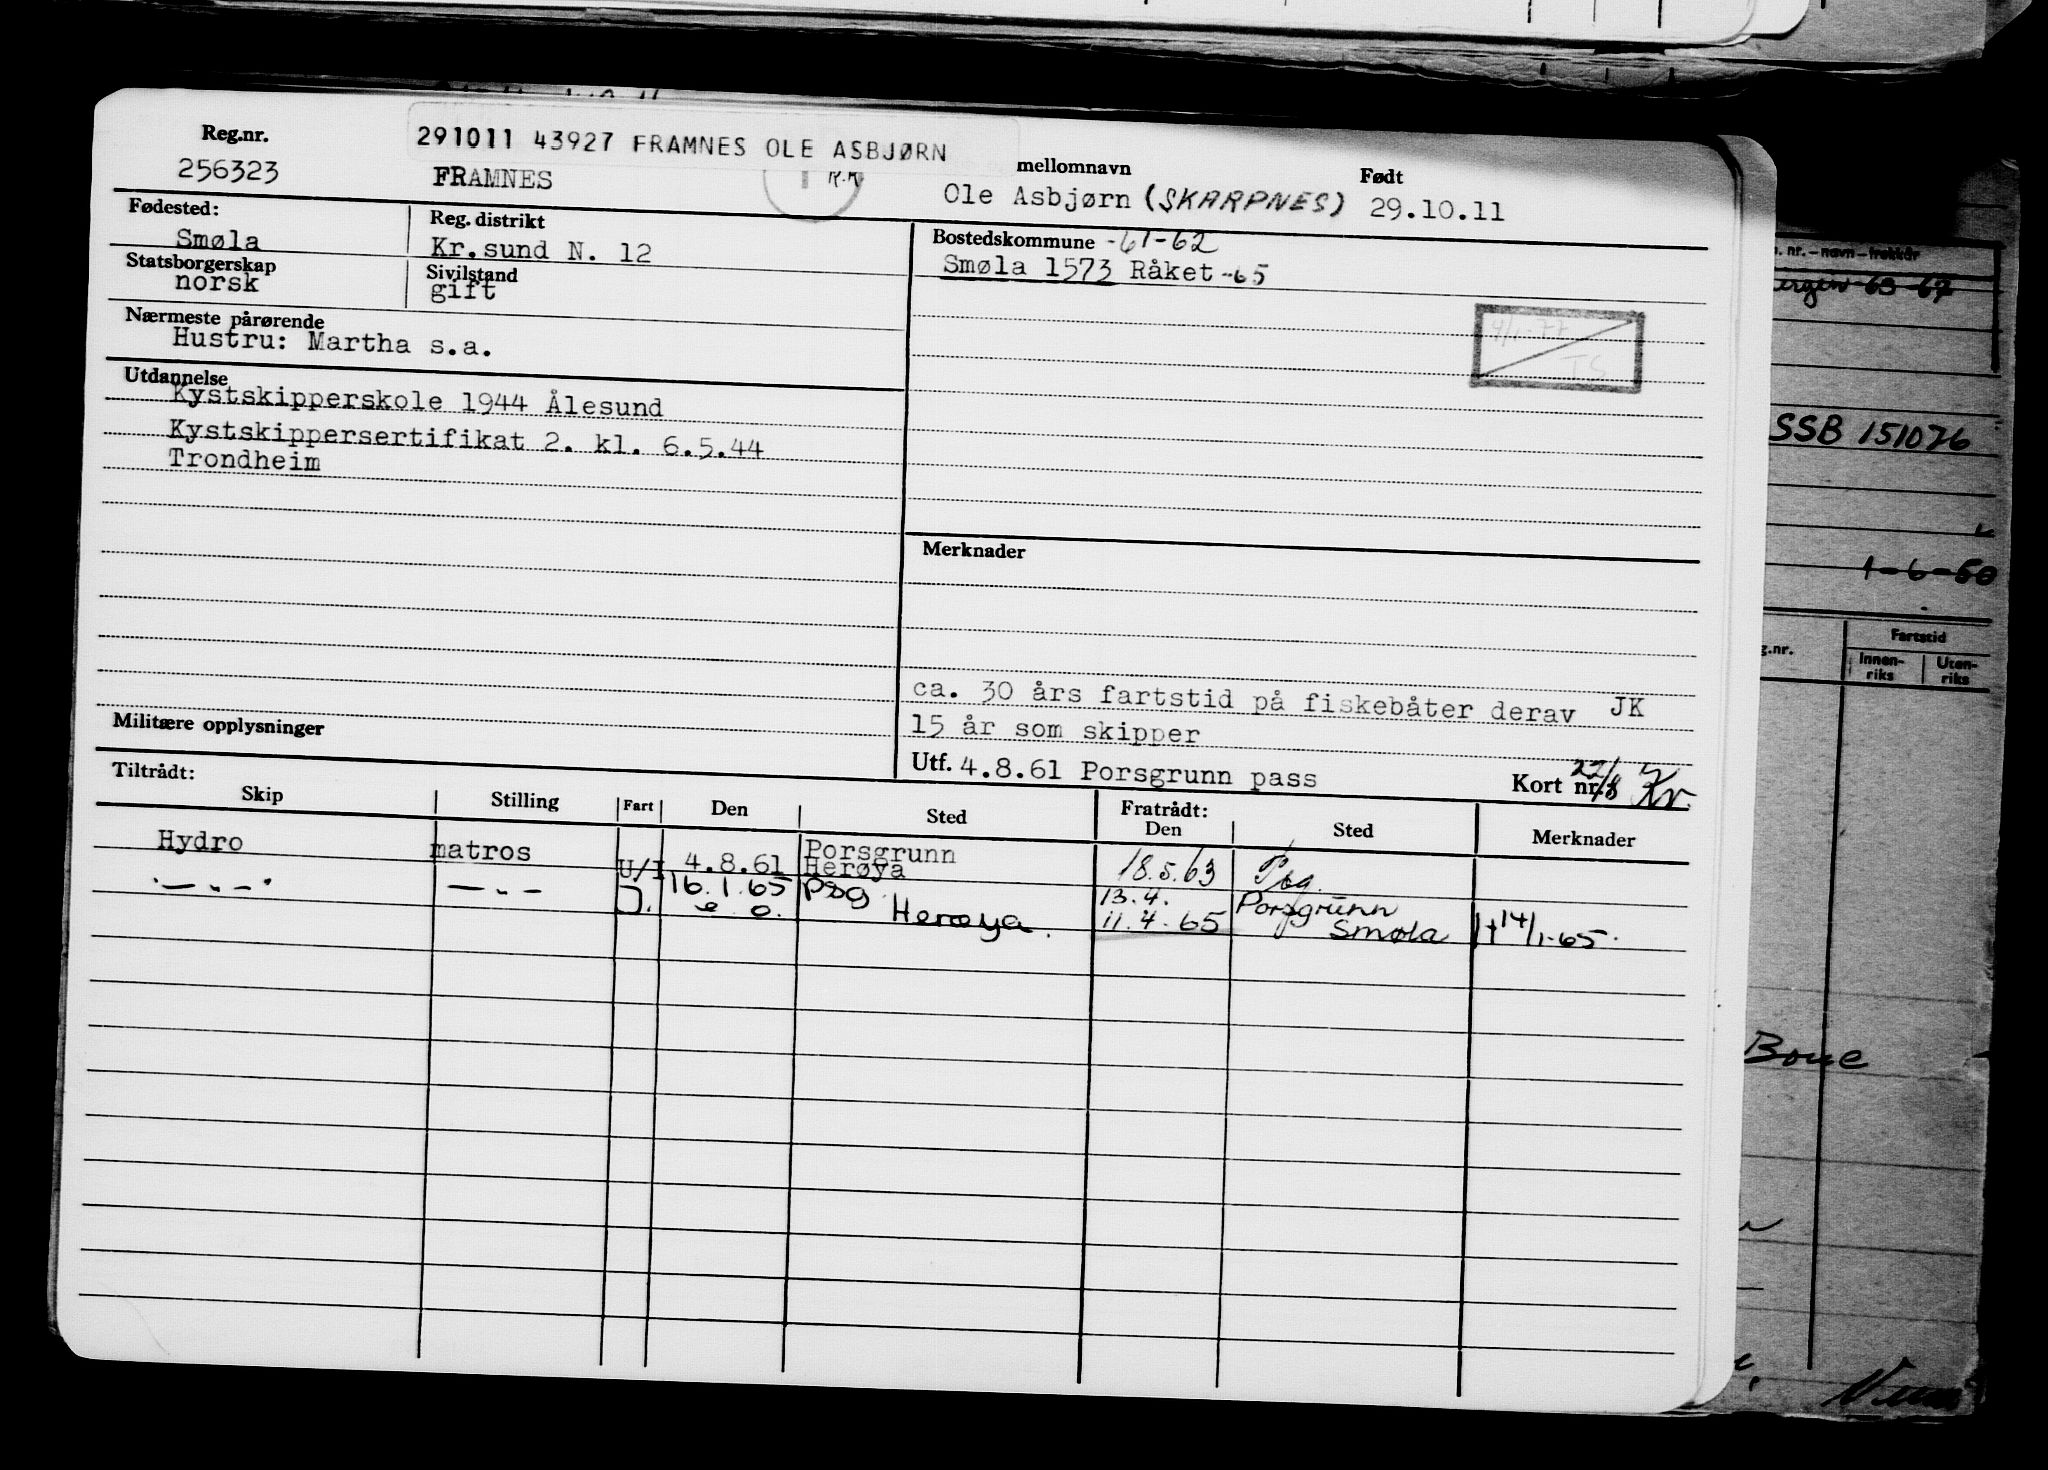 Reg.nr.
291011 43927 FRAMNES OLE ASBJØRN
mellomnavn
Født
256323
FRAMNES
Ole Asbjørn (SKARPNES) 29.10.11
Fødested:
Smøla
Reg. distrikt
Kr.sund N. 12
Bostedskommune -61-62
Smøla 1573 Råket -65
Statsborgerskap
norsk
Sivilstand
gift
Nærmeste pårørende
Hustru: Martha s.a.
4/1-77
TS
Utdannelse
Kystskipperskole 1944 Ålesund
Kystskippersertifikat 2. kl. 6.5.44
Trondheim
Merknader
ca. 30 års fartstid på fiskebåter derav JK
15 år som skipper
Militære opplysninger
Utf. 4.8.61 Porsgrunn pass
Kort nr. 22/8 Kr.
Tiltrådt:
Skip
Stilling
Fart
Den
Sted
Fratrådt:
Den
Sted
Merknader
Hydro matros U/I 4.8.61 Porsgrunn
Herøya 18.5.63 Psg.
-"- -"- I. 16.1.65 Psg 13.4. Porsgrunn
Herøya. 11.4.65 Smøla 14/1-65.
nr. – navn – trekkår
63-67
SSB 151076
1-6-50
g.nr.
Fartstid
Innen-
riks
Uten-
riks
Boue